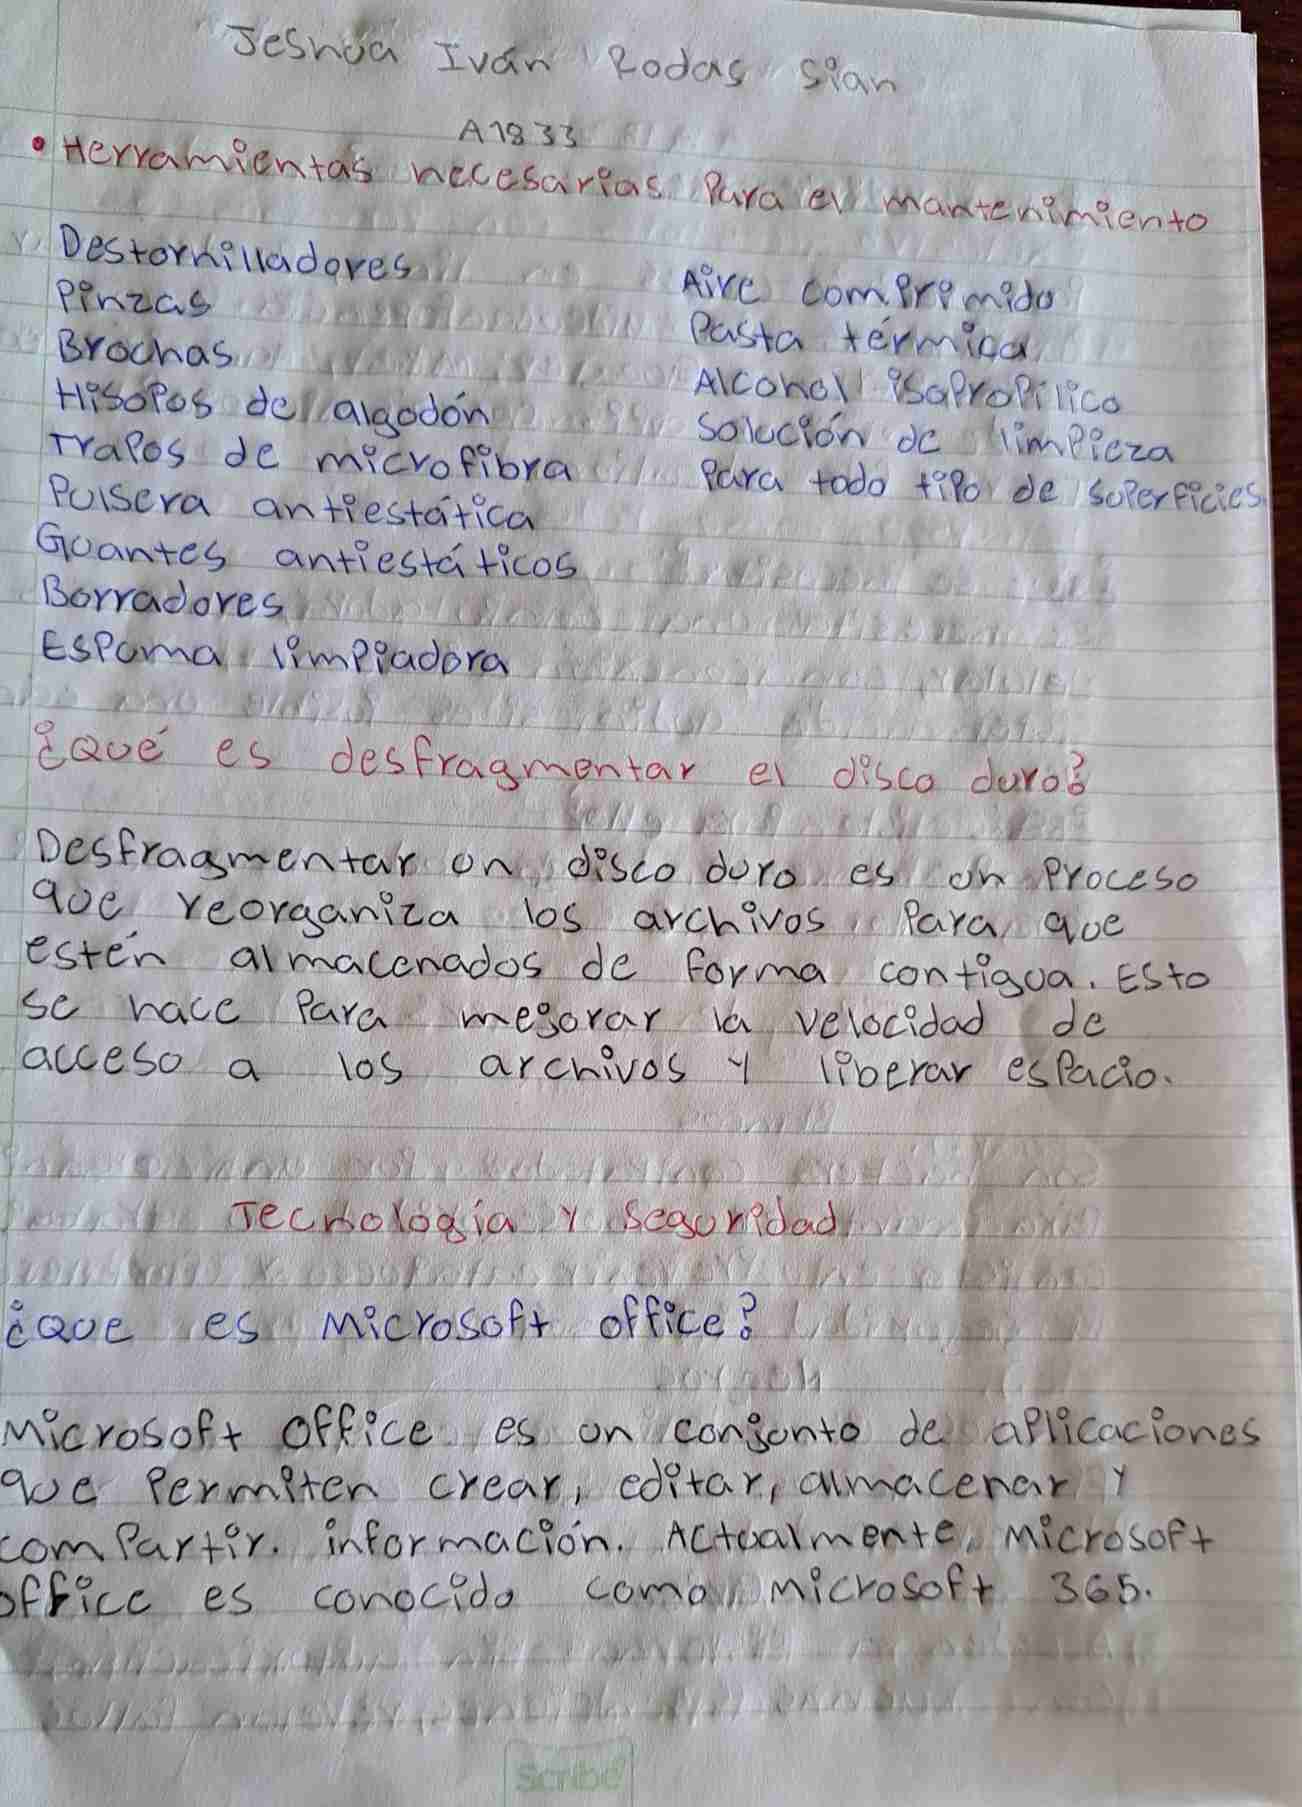 Jeshua Iván Rodas Sian
A1833
• Herramientas necesarias para el mantenimiento
Destornilladores
Pinzas
Brochas
Hisopos de algodón
Trapos de microfibra
Pulsera antiestática
Guantes antiestáticos
Borradores
Espuma limpiadora
Aire comprimido
Pasta térmica
Alcohol isopropílico
Solución de limpieza
Para todo tipo de superficies
¿Qué es desfragmentar el disco duro?
Desfragmentar un disco duro es un proceso
que reorganiza los archivos para que
estén almacenados de forma contigua. Esto
se hace para mejorar la velocidad de
acceso a los archivos y liberar espacio.
Tecnología y Seguridad
¿Que es Microsoft office?
Microsoft Office es un conjunto de aplicaciones
que permiten crear, editar, almacenar y
compartir. información. Actualmente, Microsoft
office es conocido como Microsoft 365.
Scribe